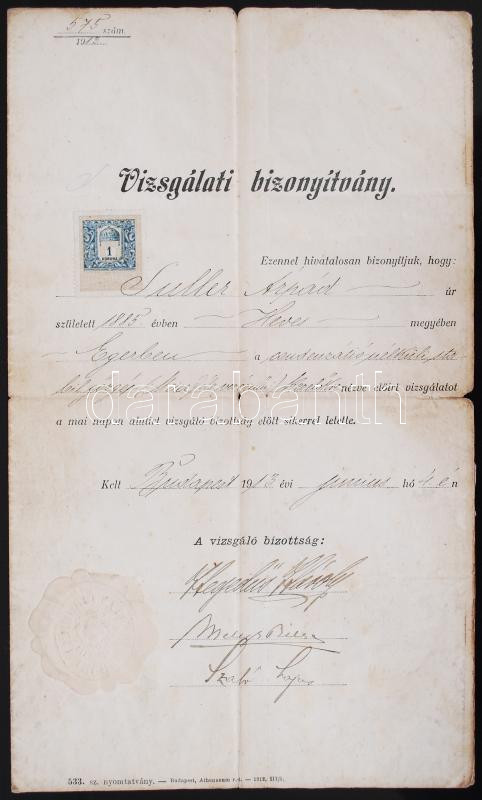 575 szám.
191
Vizsgálati bizonyítvány.
1
KORONA
Ezennel hivatalosan bizonyítjuk, hogy:
Suller Árpád úr
született 1885. évben Heves megyében
Egerben a
nézve előirt vizsgálatot
a mai napon alulirt vizsgáló bizottság előtt sikerrel letette.
Kelt Budapest 1913 évi junius hó 4 én
A vizsgáló bizottság:
Hegedüs Károly
Szabó Lajos
533. sz. nyomtatvány. — Budapest, Athenaeum r.-t. —
darabanth